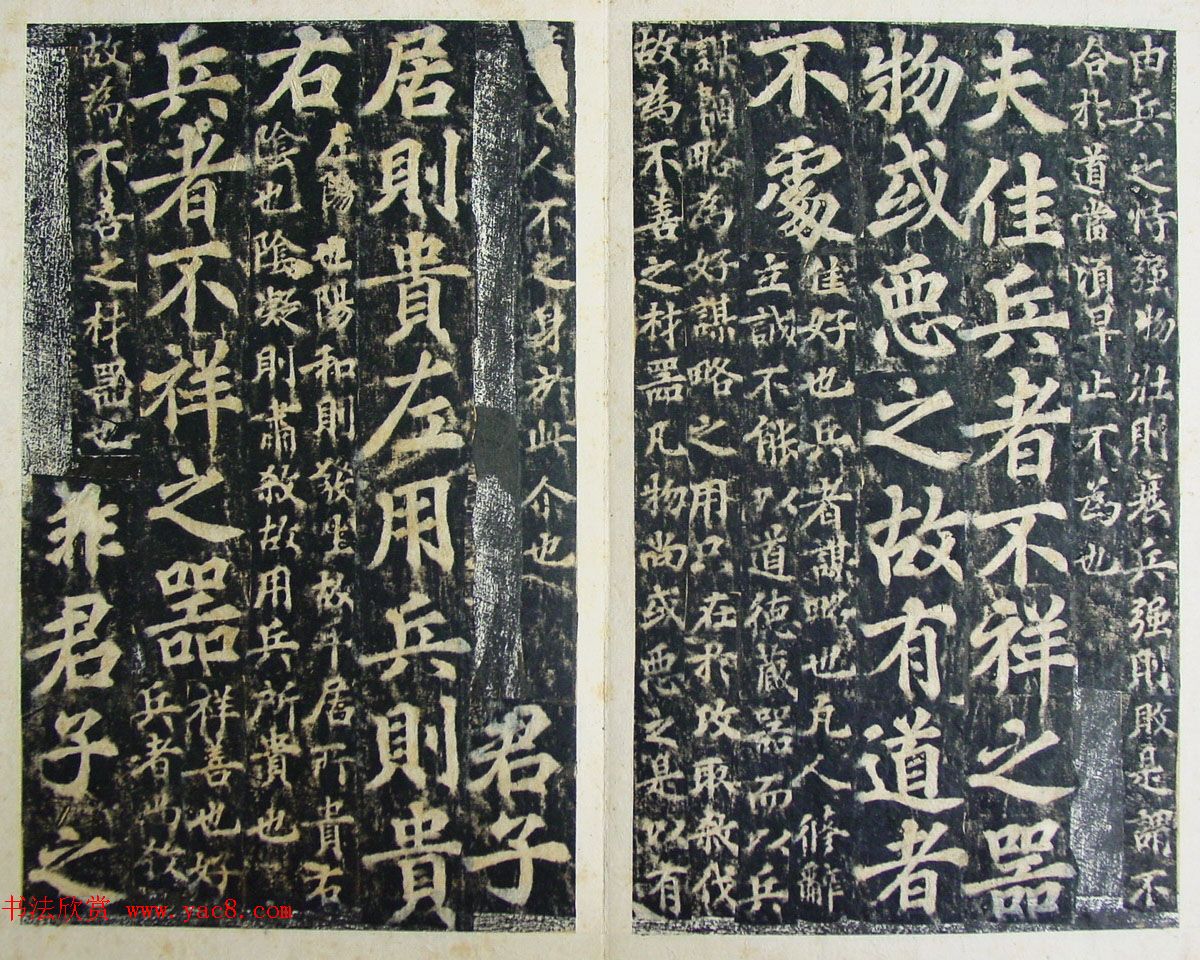 由兵之恃强物壯則衰兵强則敗是謂不
合於道當須早止不為也
夫佳兵者不祥之器
物或惡之故有道者
不處
佳好也兵者謀略也凡人修辭
立誠不能以道德藏器而以兵
謀略為好謀略之用只在於攻取殺伐
故為不善之材器凡物尚或惡之是以有
人不之身於此介也
君子
居則貴左用兵則貴
右
左陽也陽和則發生故平居所貴右
陰也陰凝則肅殺故用兵所貴也
兵者不祥之器
祥善也好
兵者尚殺
故為不善之材器也
非君子之
书法欣赏 www.yac8.com